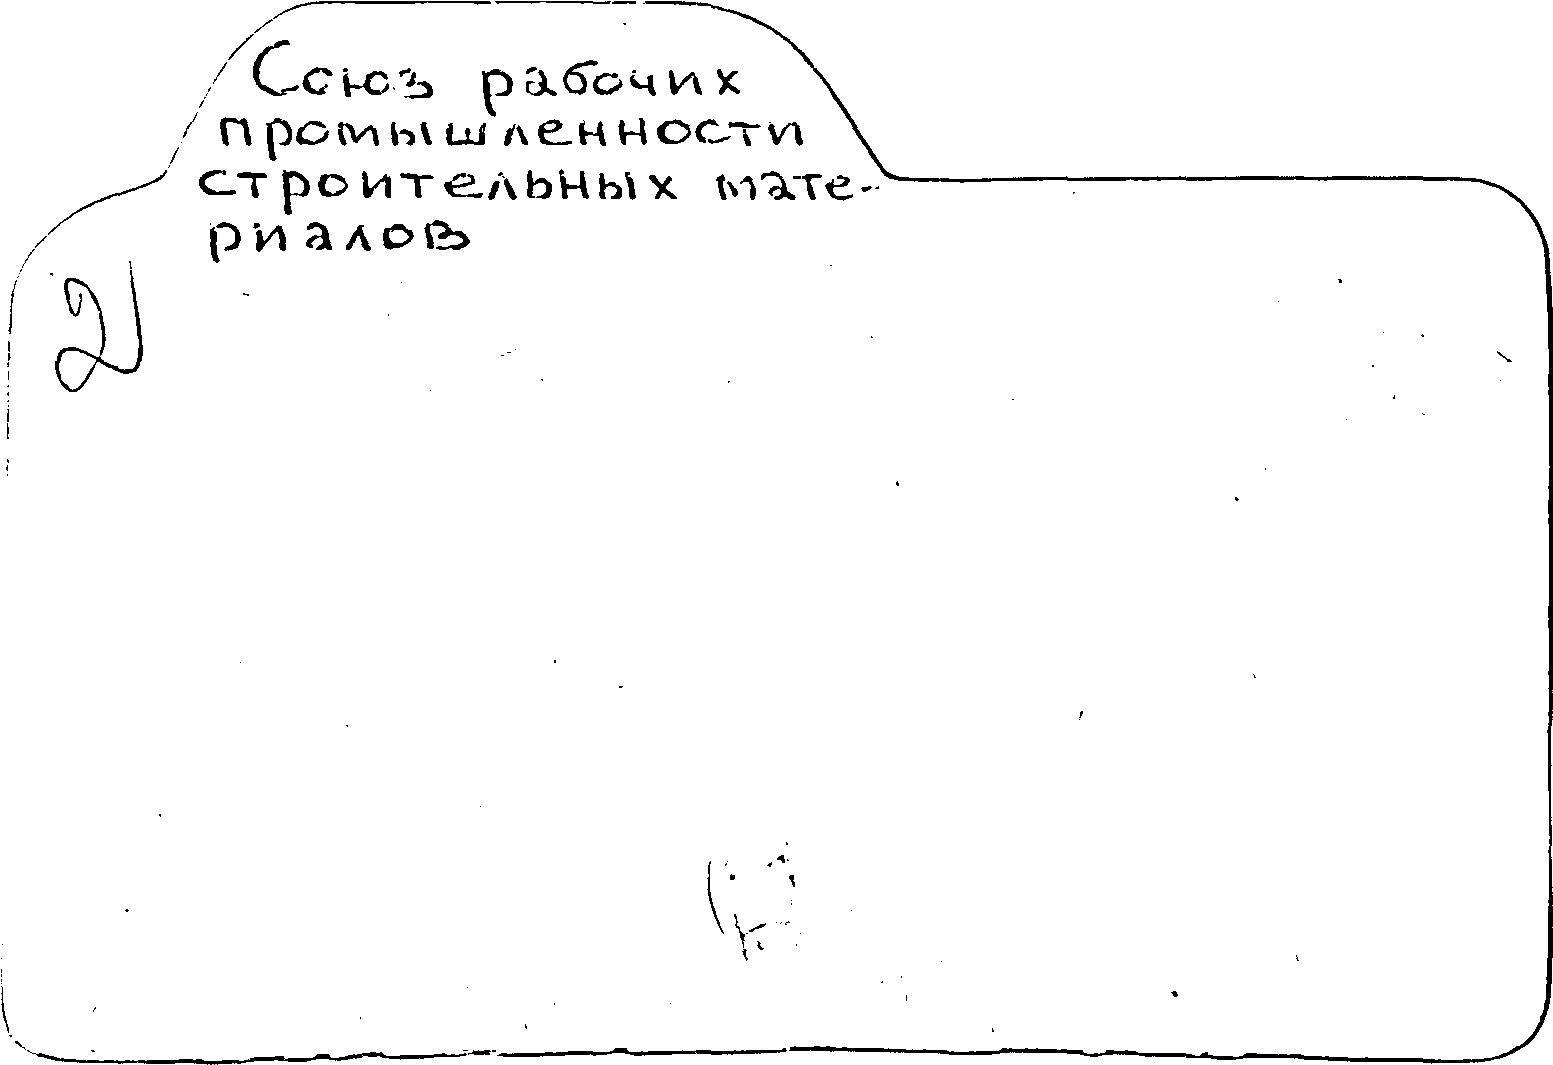 Союз рабочих
промышленности
строительных мате-
риалов